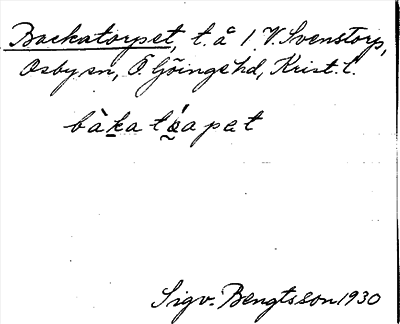 Backatorpet, t. å 1 V. Svenstorp,
Osby sn, Ö. Göinge hd, Krist. l.
bàkatǻapet
Sigv. Bengtsson 1930